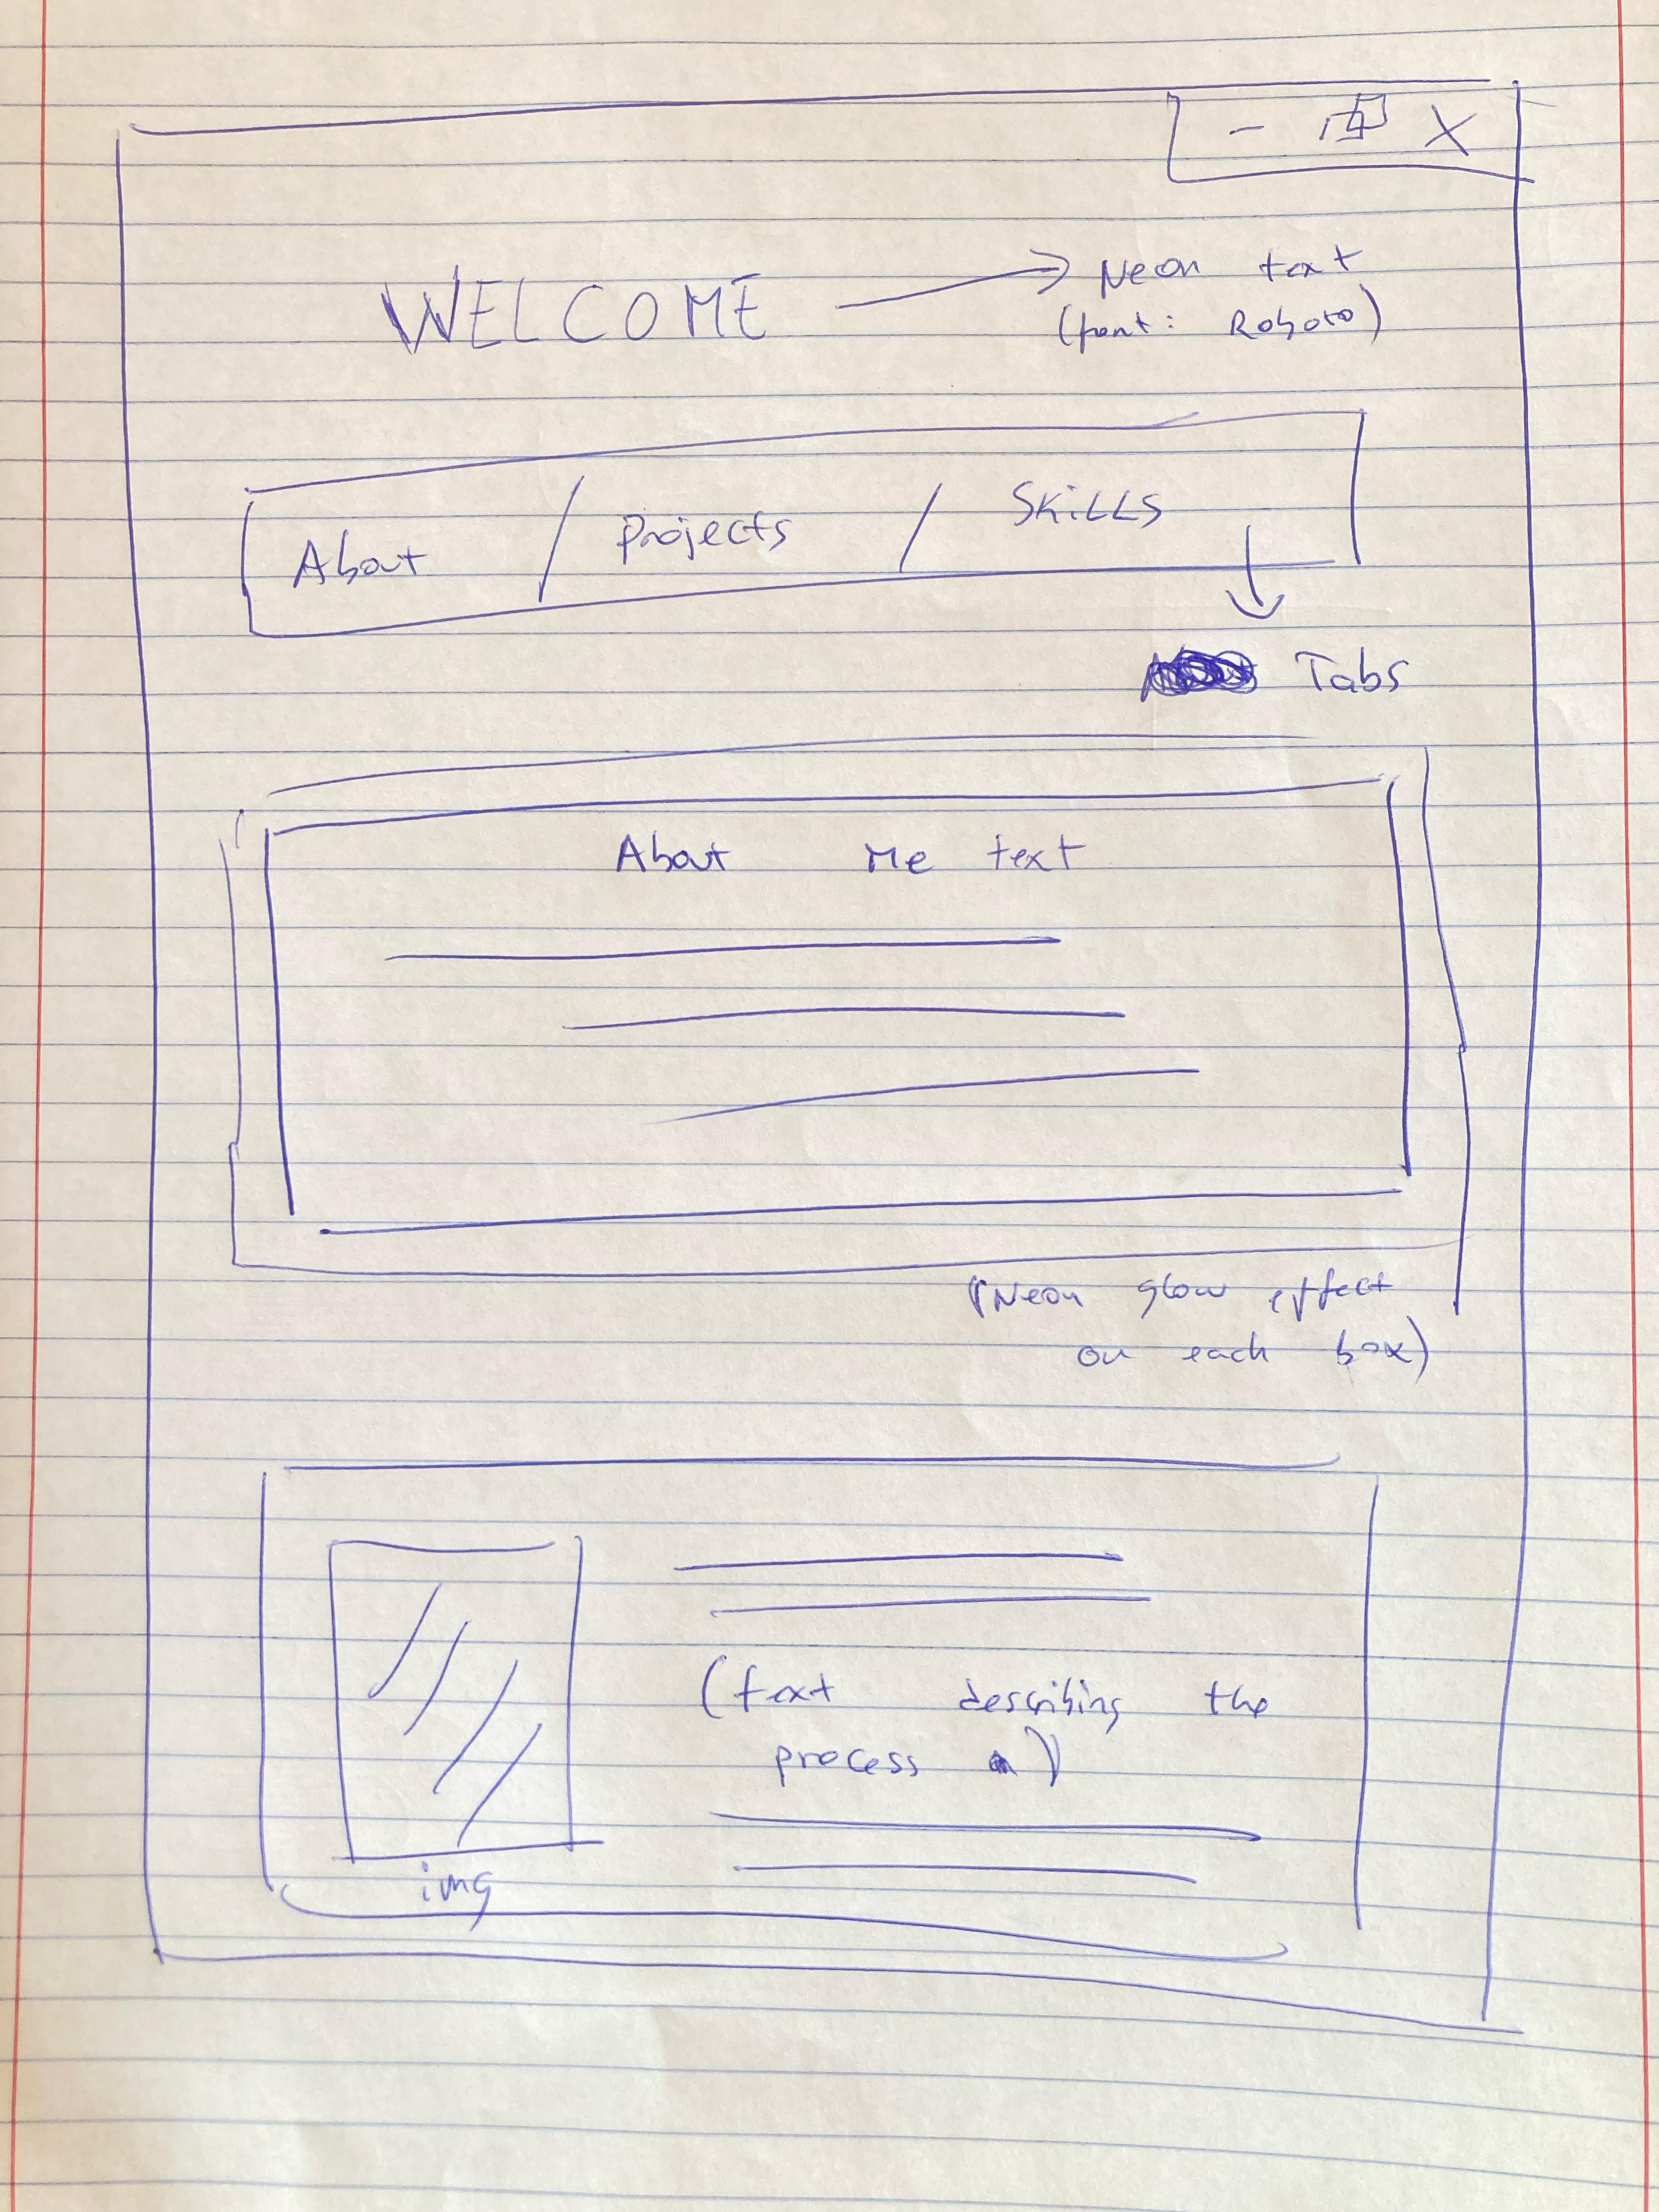 WELCOME
Neon text
(font: Roboto)
About / Projects / SKILLS
Tabs
About Me text
(Neon glow effect
on each box)
(text describing the
process )
img